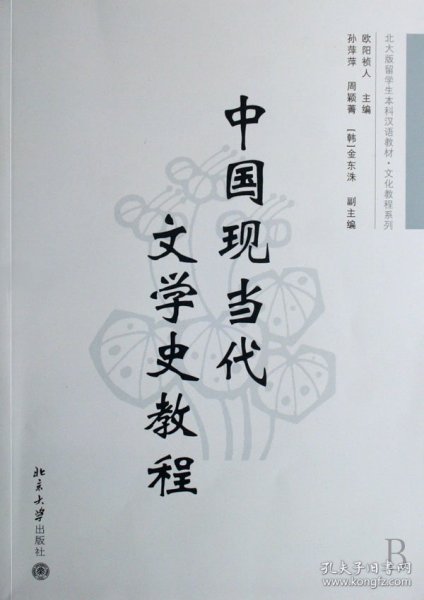 北大版留学生本科汉语教材·文化教程系列
欧阳祯人 主编
孙萍萍 周颖菁 [韩]金东洙 副主编
中国现当代
文学史教程
北京大学出版社
B
孔夫子旧书网
www.kongfz.com